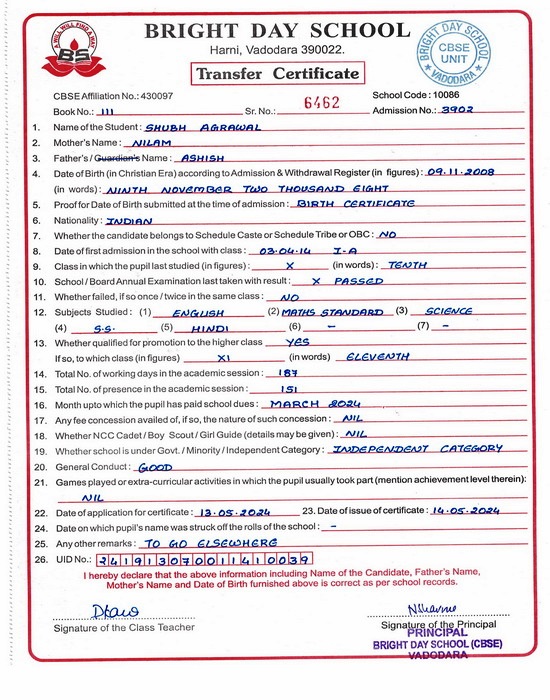 A WILL WILL FIND A WAY
BS
BRIGHT DAY SCHOOL
Harni, Vadodara 390022.
Transfer Certificate
BRIGHT DAY SCHOOL
CBSE
UNIT
VADODARA
CBSE Affiliation No.: 430097
School Code : 10086
Book No.: III Sr. No.: 6462 Admission No.: 3902
1. Name of the Student : SHUBH AGRAWAL
2. Mother's Name : NILAM
3. Father's / Guardian's Name : ASHISH
4. Date of Birth (in Christian Era) according to Admission & Withdrawal Register (in figures) : 09.11.2008
(in words) : NINTH NOVEMBER TWO THOUSAND EIGHT
5. Proof for Date of Birth submitted at the time of admission : BIRTH CERTIFICATE
6. Nationality : INDIAN
7. Whether the candidate belongs to Schedule Caste or Schedule Tribe or OBC : NO
8. Date of first admission in the school with class : 03.04.14 I-A
9. Class in which the pupil last studied (in figures) : X (in words) : TENTH
10. School / Board Annual Examination last taken with result : X PASSED
11. Whether failed, if so once / twice in the same class : NO
12. Subjects Studied : (1) ENGLISH (2) MATHS STANDARD (3) SCIENCE
(4) S.S. (5) HINDI (6) - (7) -
13. Whether qualified for promotion to the higher class YES
If so, to which class (in figures) XI (in words) ELEVENTH
14. Total No. of working days in the academic session : 187
15. Total No. of presence in the academic session : 151
16. Month upto which the pupil has paid school dues : MARCH 2024
17. Any fee concession availed of, if so, the nature of such concession : NIL
18. Whether NCC Cadet / Boy Scout / Girl Guide (details may be given) : NIL
19. Whether school is under Govt. / Minority / Independent Category : INDEPENDENT CATEGORY
20. General Conduct : GOOD
21. Games played or extra-curricular activities in which the pupil usually took part (mention achievement level therein):
NIL
22. Date of application for certificate : 13.05.2024 23. Date of issue of certificate : 14.05.2024
24. Date on which pupil's name was struck off the rolls of the school : -
25. Any other remarks : TO GO ELSEWHERE
26. UID No.: 241913070011410039
I hereby declare that the above information including Name of the Candidate, Father's Name,
Mother's Name and Date of Birth furnished above is correct as per school records.
Signature of the Class Teacher
Signature of the Principal
PRINCIPAL
BRIGHT DAY SCHOOL (CBSE)
VADODARA